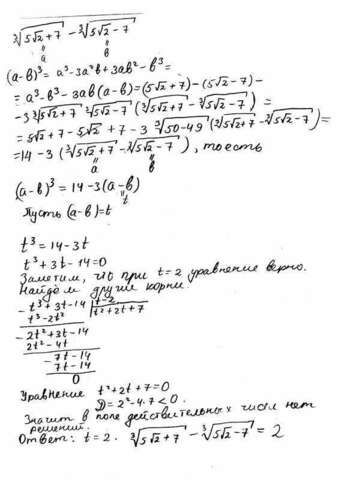 ∛(5√2+7) - ∛(5√2-7)
a b
(a-b)³ = a³-3a²b+3ab²-b³=
= a³-b³-3ab(a-b)=(5√2+7)-(5√2-7)-
-3∛(5√2+7) ∛(5√2-7) (∛(5√2+7) - ∛(5√2-7)) =
= 5√2+7-5√2+7-3 ∛(50-49) (∛(5√2+7) - ∛(5√2-7)) =
=14-3(∛(5√2+7) - ∛(5√2-7)), то есть
a b
(a-b)³ = 14-3(a-b)
t
Пусть (a-b)=t
t³=14-3t
t³+3t-14=0
Заметим, что при t=2 уравнение верно.
Найдем другие корни
t³+3t-14 | t-2
t³-2t² | t²+2t+7
2t²+3t-14
2t²-4t
7t-14
7t-14
0
Уравнение t²+2t+7=0
D=2²-4·7<0.
Значит в поле действительных чисел нет
решений.
Ответ: t=2. ∛(5√2+7) - ∛(5√2-7) = 2